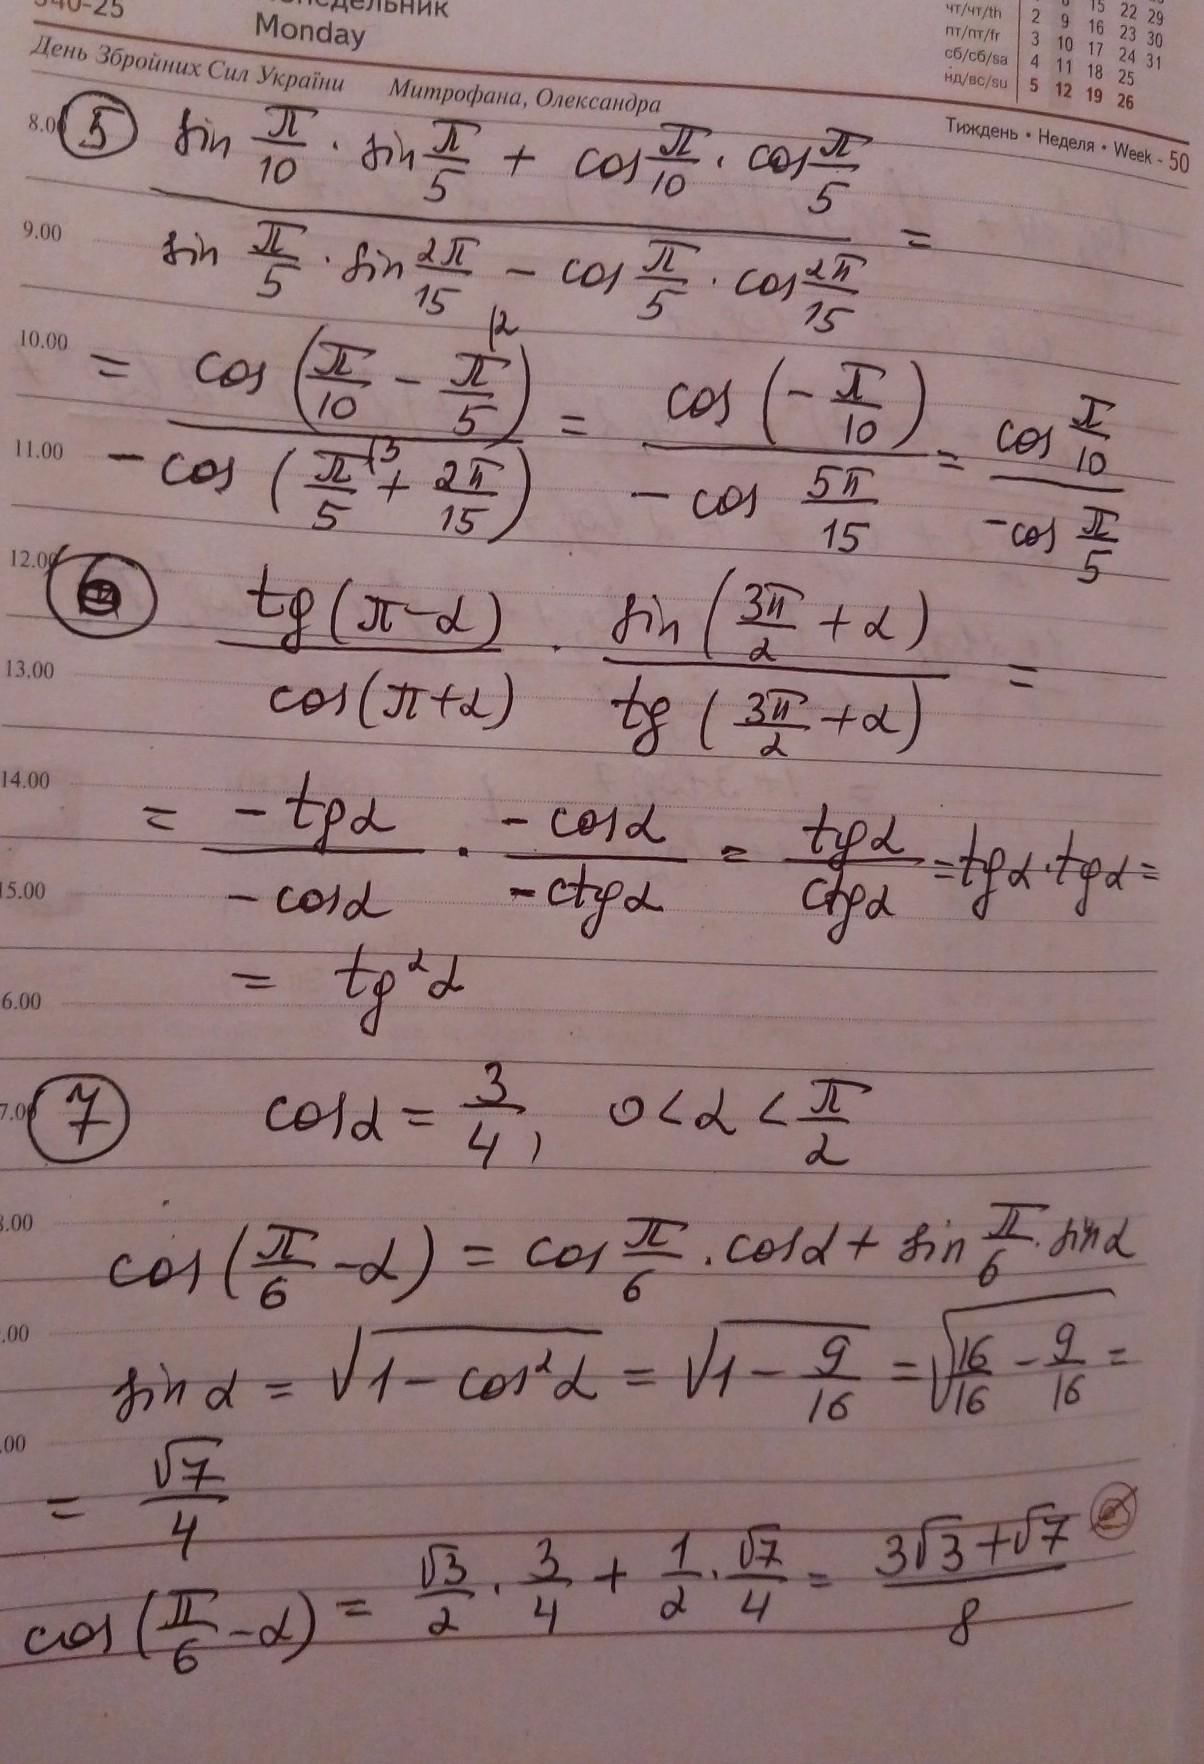 340-25
Monday
День Збройних Сил України Митрофана, Олександра
чт/чт/th 2 9 16 23 30
пт/пт/fr 3 10 17 24 31
сб/сб/sa 4 11 18 25
нд/вс/su 5 12 19 26
Тиждень • Неделя • Week - 50
8.00
⑤ (sin π/10 · sin π/5 + cos π/10 · cos π/5) / (sin π/5 · sin 2π/15 − cos π/5 · cos 2π/15) =
9.00
10.00
= cos (π/10 − π/5 |2) / −cos (π/5 |3 + 2π/15) = cos (−π/10) / −cos 5π/15 = cos π/10 / −cos π/5
11.00
12.00
⑥ tg (π−α) / cos(π+α) · sin (3π/2 + α) / tg (3π/2 + α) =
13.00
14.00
= −tgα / −cosα · −cosα / −ctgα = tgα / ctgα = tgα · tgα =
15.00
= tg²α
6.00
7.00
⑦ cosα = 3/4, 0 < α < π/2
8.00
cos(π/6 − α) = cos π/6 · cosα + sin π/6 · sinα
.00
sin α = √(1 − cos²α) = √(1 − 9/16) = √(16/16 − 9/16) =
.00
= √7/4
cos(π/6 − α) = √3/2 · 3/4 + 1/2 · √7/4 = (3√3 + √7)/8